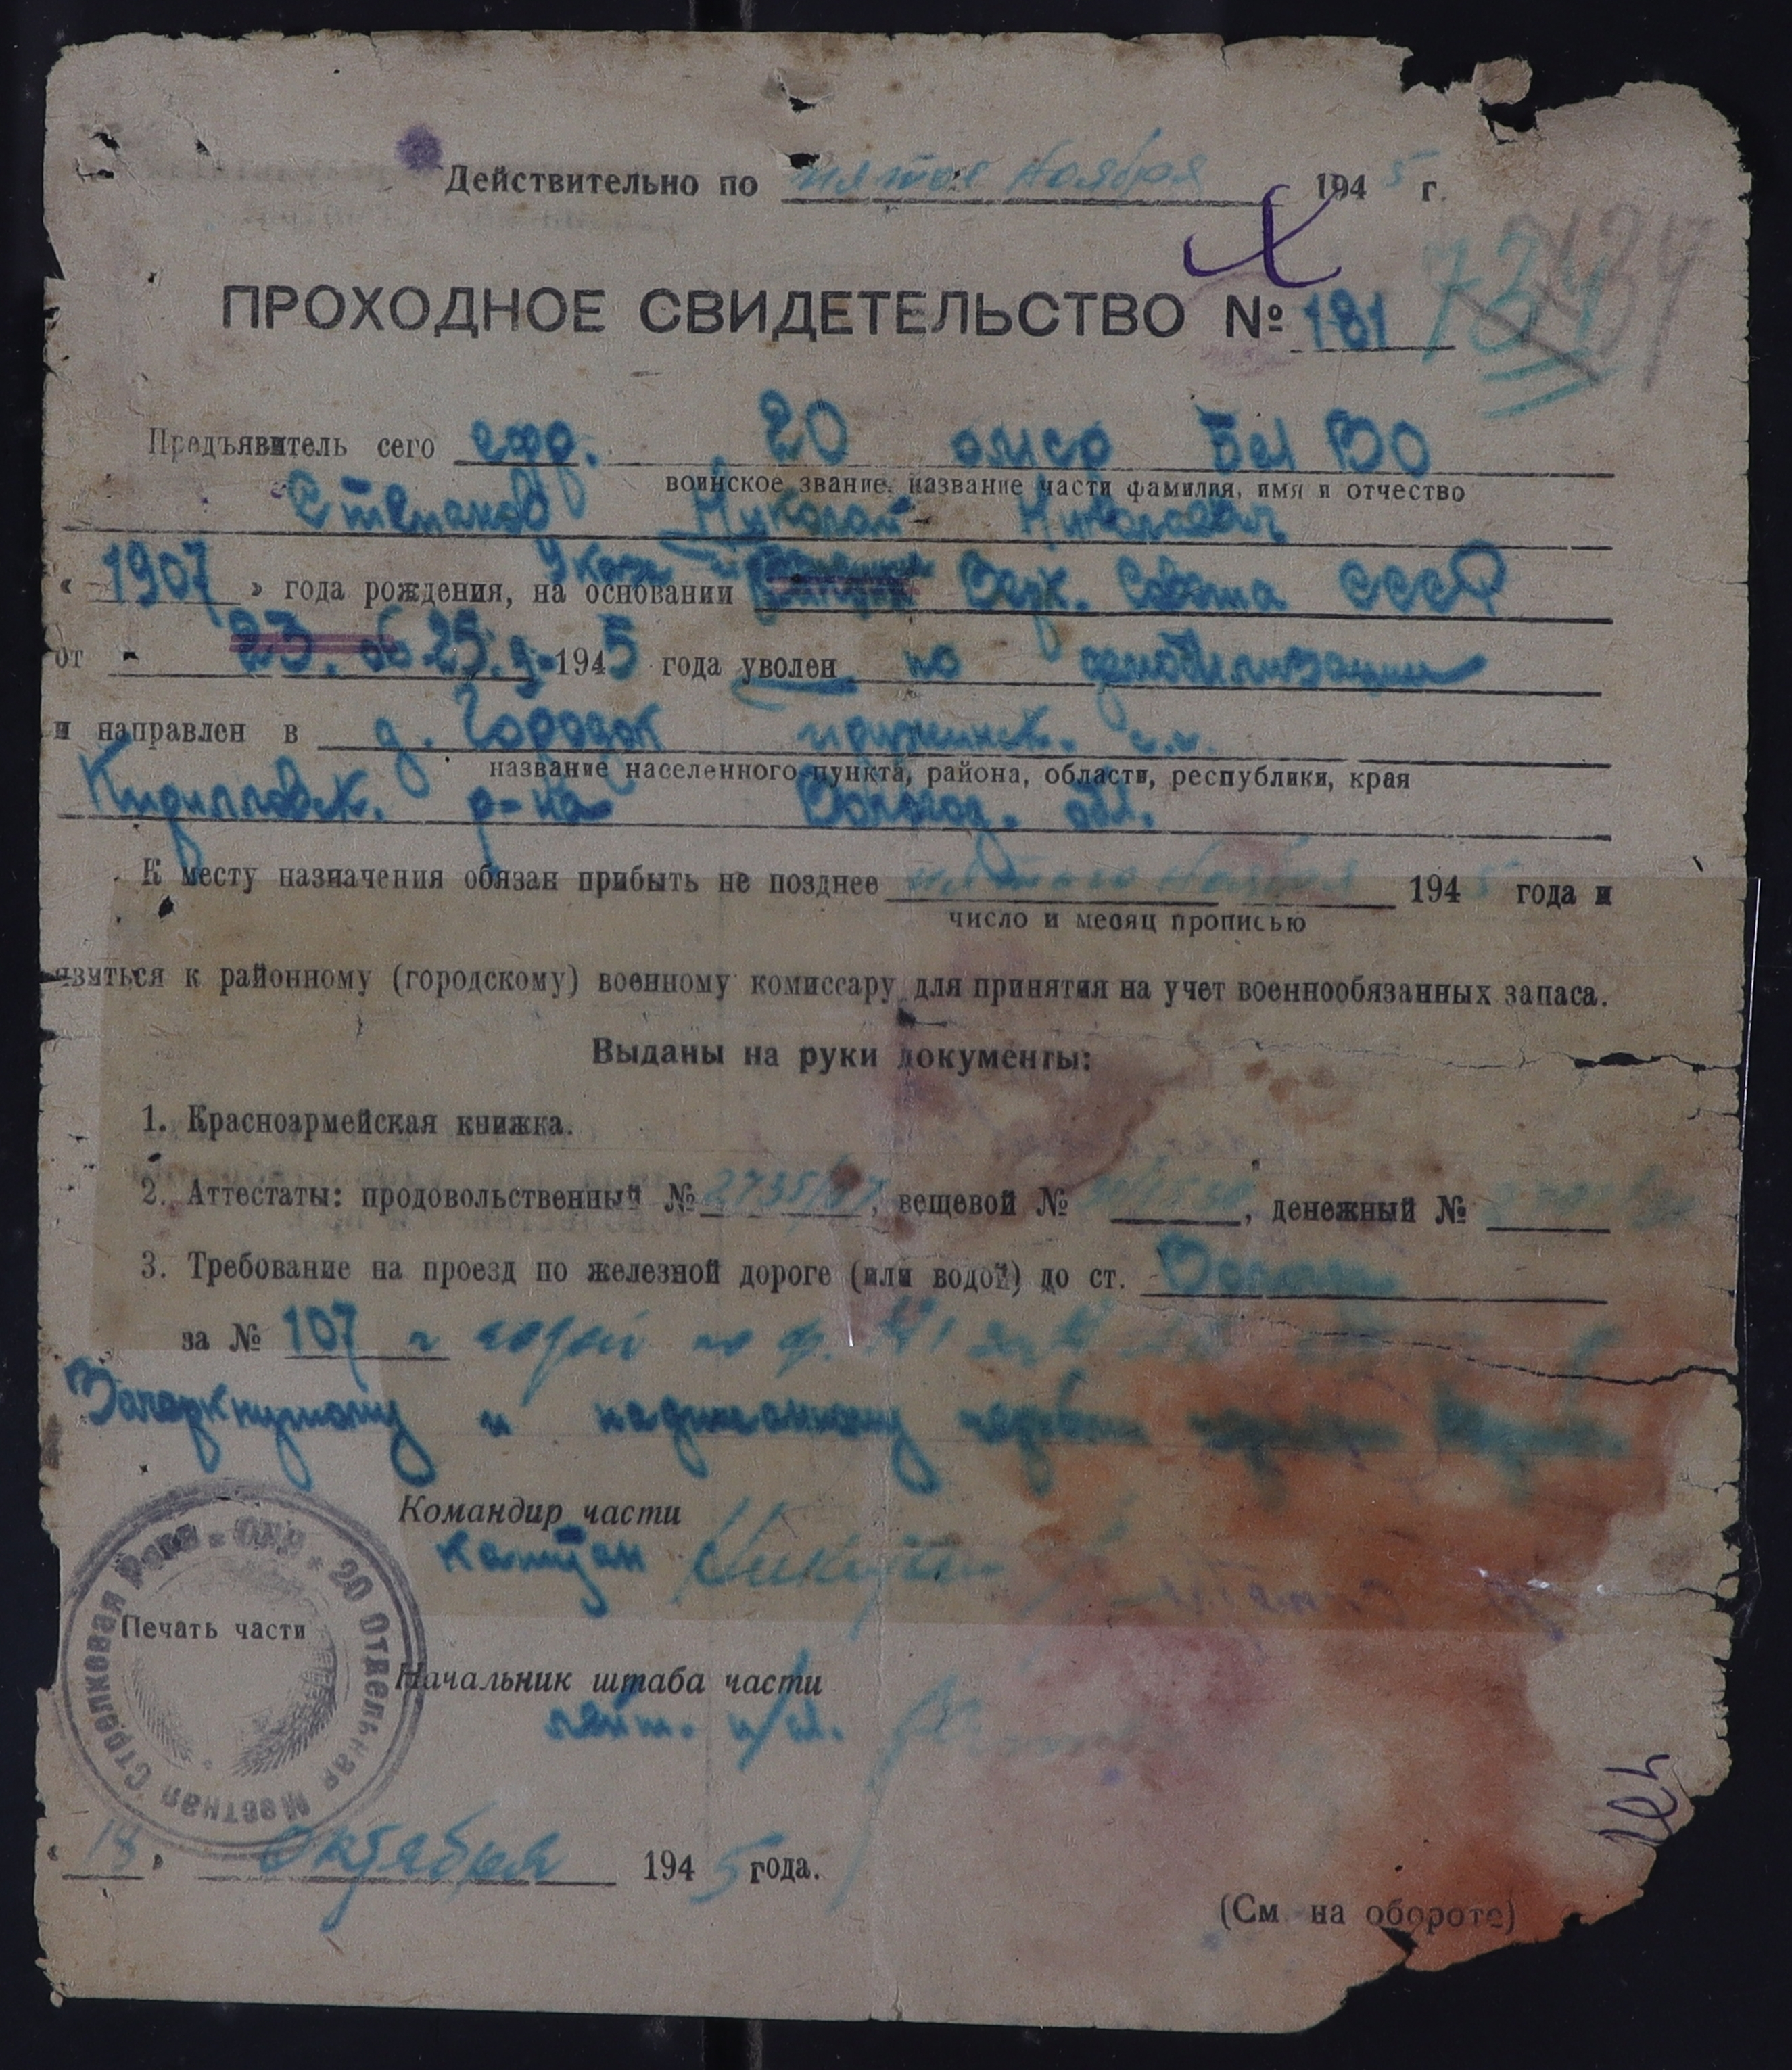 Действительно по пятое ноября 1945 г.
ПРОХОДНОЕ СВИДЕТЕЛЬСТВО № 181
734
Предъявитель сего 20 омср Бел ВО
воинское звание, название части фамилия, имя и отчество
Степанов Николай Николаевич
Указа
« 1907 » года рождения, на основании Верх. Совета СССР
от 23. 06 25. 9-1945 года уволен по демобилизации
и направлен в д. Городок
название населенного пункта, района, области, республики, края
Кирилловск. р-на Вологод. обл.
К месту назначения обязан прибыть не позднее пятого ноября 1945 года и
число и месяц прописью
явиться к районному (городскому) военному комиссару для принятия на учет военнообязанных запаса.
Выданы на руки документы:
1. Красноармейская книжка.
2. Аттестаты: продовольственный № , вещевой № , денежный №
3. Требование на проезд по железной дороге (или водой) до ст. Вологда
за № 107 по ф. №1
Зачеркнутому и надписанному
Командир части
капитан
Печать части
20 Отдельная Местная Стрелковая Рота
Начальник штаба части
лейт.
« 18 » октября 1945 года.
(См на обороте)